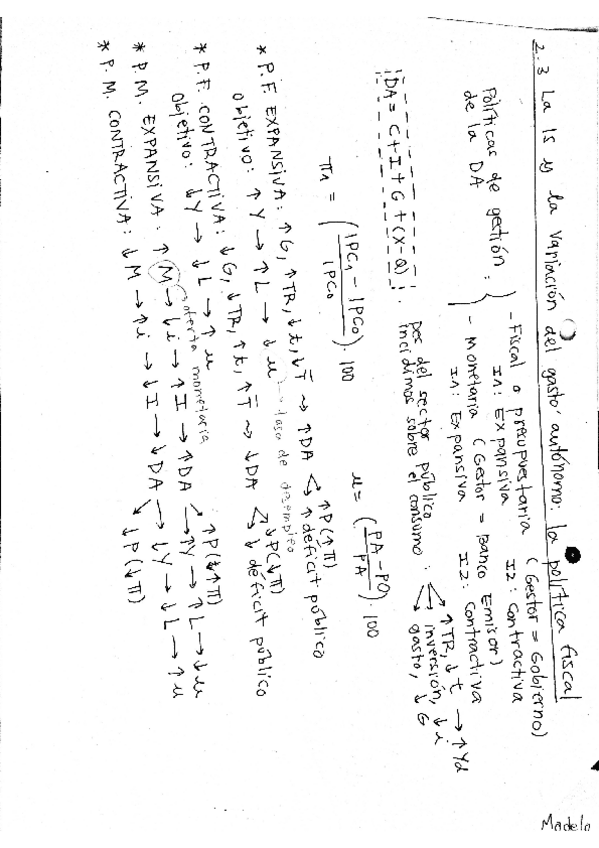 2.3 La IS y la variación del gasto autónomo: la política fiscal
Políticas de gestión de la DA:
- Fiscal o presupuestaria (Gestor = Gobierno)
I1: Expansiva I2: Contractiva
- Monetaria (Gestor = Banco Emisor)
I1: Expansiva I2: Contractiva
DA = C + I + G + (X-Q)
pes del sector público incidimos sobre el consumo: ↑TR, ↓t → ↑Yd
inversión, ↓i
gasto, ↓G
π1 = (IPC1 - IPC0 / IPC0) · 100
u = (PA - PO / PA) · 100
* P.F. EXPANSIVA: ↑G, ↑TR, ↓t, ↓T̅ → ↑DA ↑P(↑π)
↑déficit público
Objetivo: ↑Y → ↑L → ↓u → tasa de desempleo
* P.F. CONTRACTIVA: ↓G, ↓TR, ↑t, ↑T̅ → ↓DA ↓P(↓π)
↓ déficit público
Objetivo: ↓Y → ↓L → ↑u
oferta monetaria
* P.M. EXPANSIVA: ↑M → ↓i → ↑I → ↑DA → ↑Y → ↑L → ↓u
↑P(↓↑π)
* P.M. CONTRACTIVA: ↓M → ↑i → ↓I → ↓DA → ↓Y → ↓L → ↑u
↓P(↓π)
Madelo